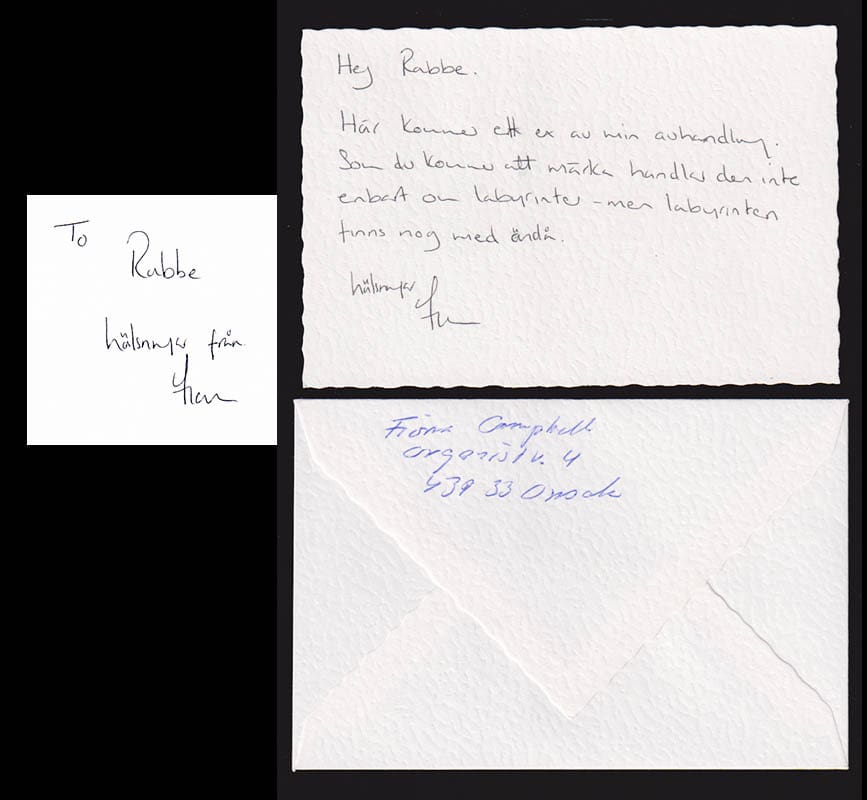 To
Rabbe
hälsningar från
Hej Rabbe.
Här kommer ett ex av min avhandling.
Som du kommer att märka handlar den inte
enbart om labyrinter – men labyrinten
finns nog med ändå.
hälsningar
Fiona Campbell
organistv. 4
439 33 Onsala